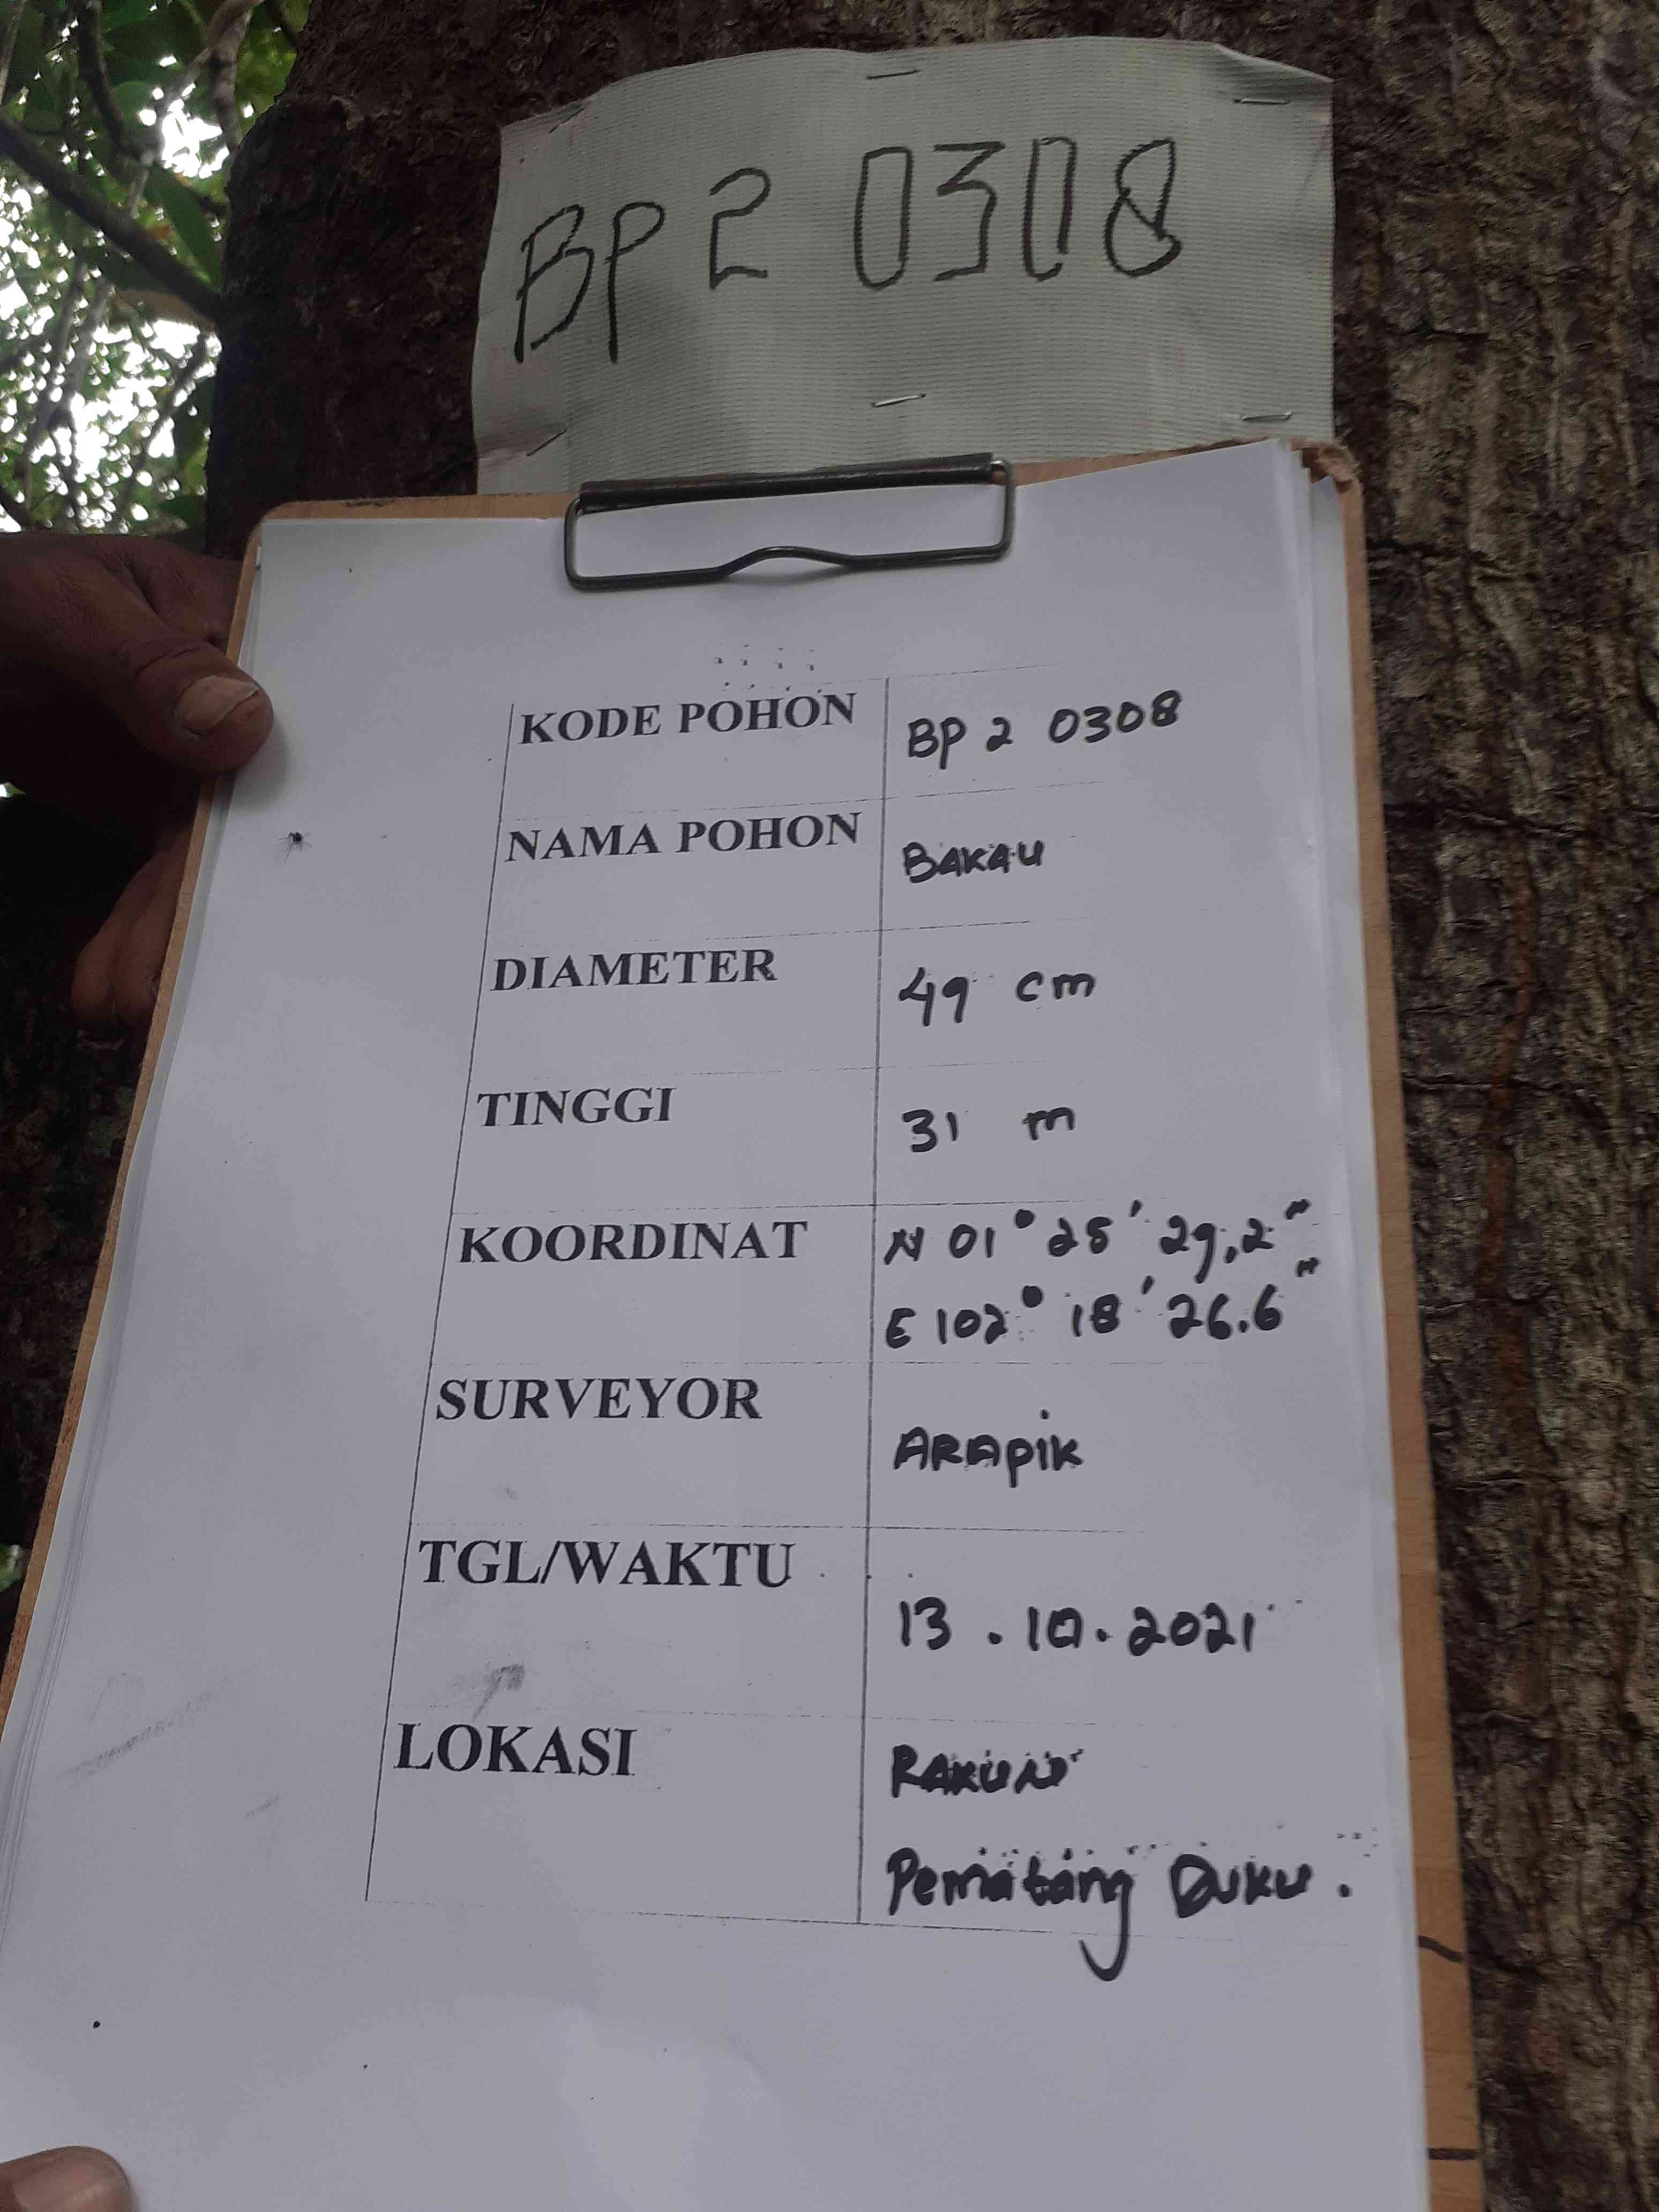 BP 2 0308
KODE POHON BP 2 0308
NAMA POHON BAKAU
DIAMETER 49 cm
TINGGI 31 m
KOORDINAT N 01° 25' 29,2"
E 102° 18' 26.6"
SURVEYOR ARAPIK
TGL/WAKTU 13.10.2021
LOKASI RAKUN
Pematang Duku.